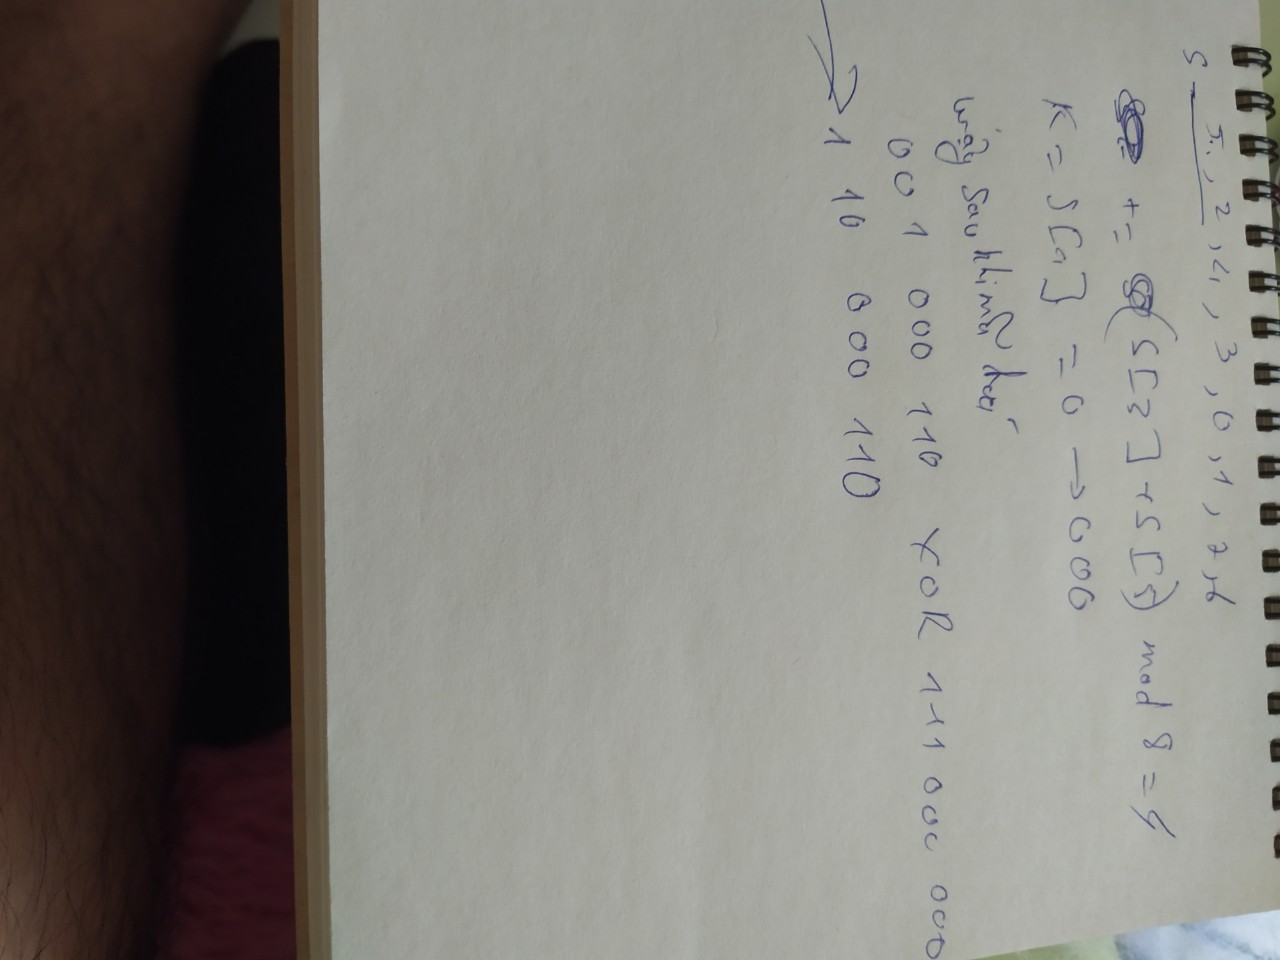 S = 5, 2, 4, 3, 0, 1, 7, 6
t = (S[3] + S[5]) mod 8 = 4
K = S[4] = 0 → 000
Vậy sau khi mã hoá
001 000 110 XOR 111 000 000
→ 110 000 110